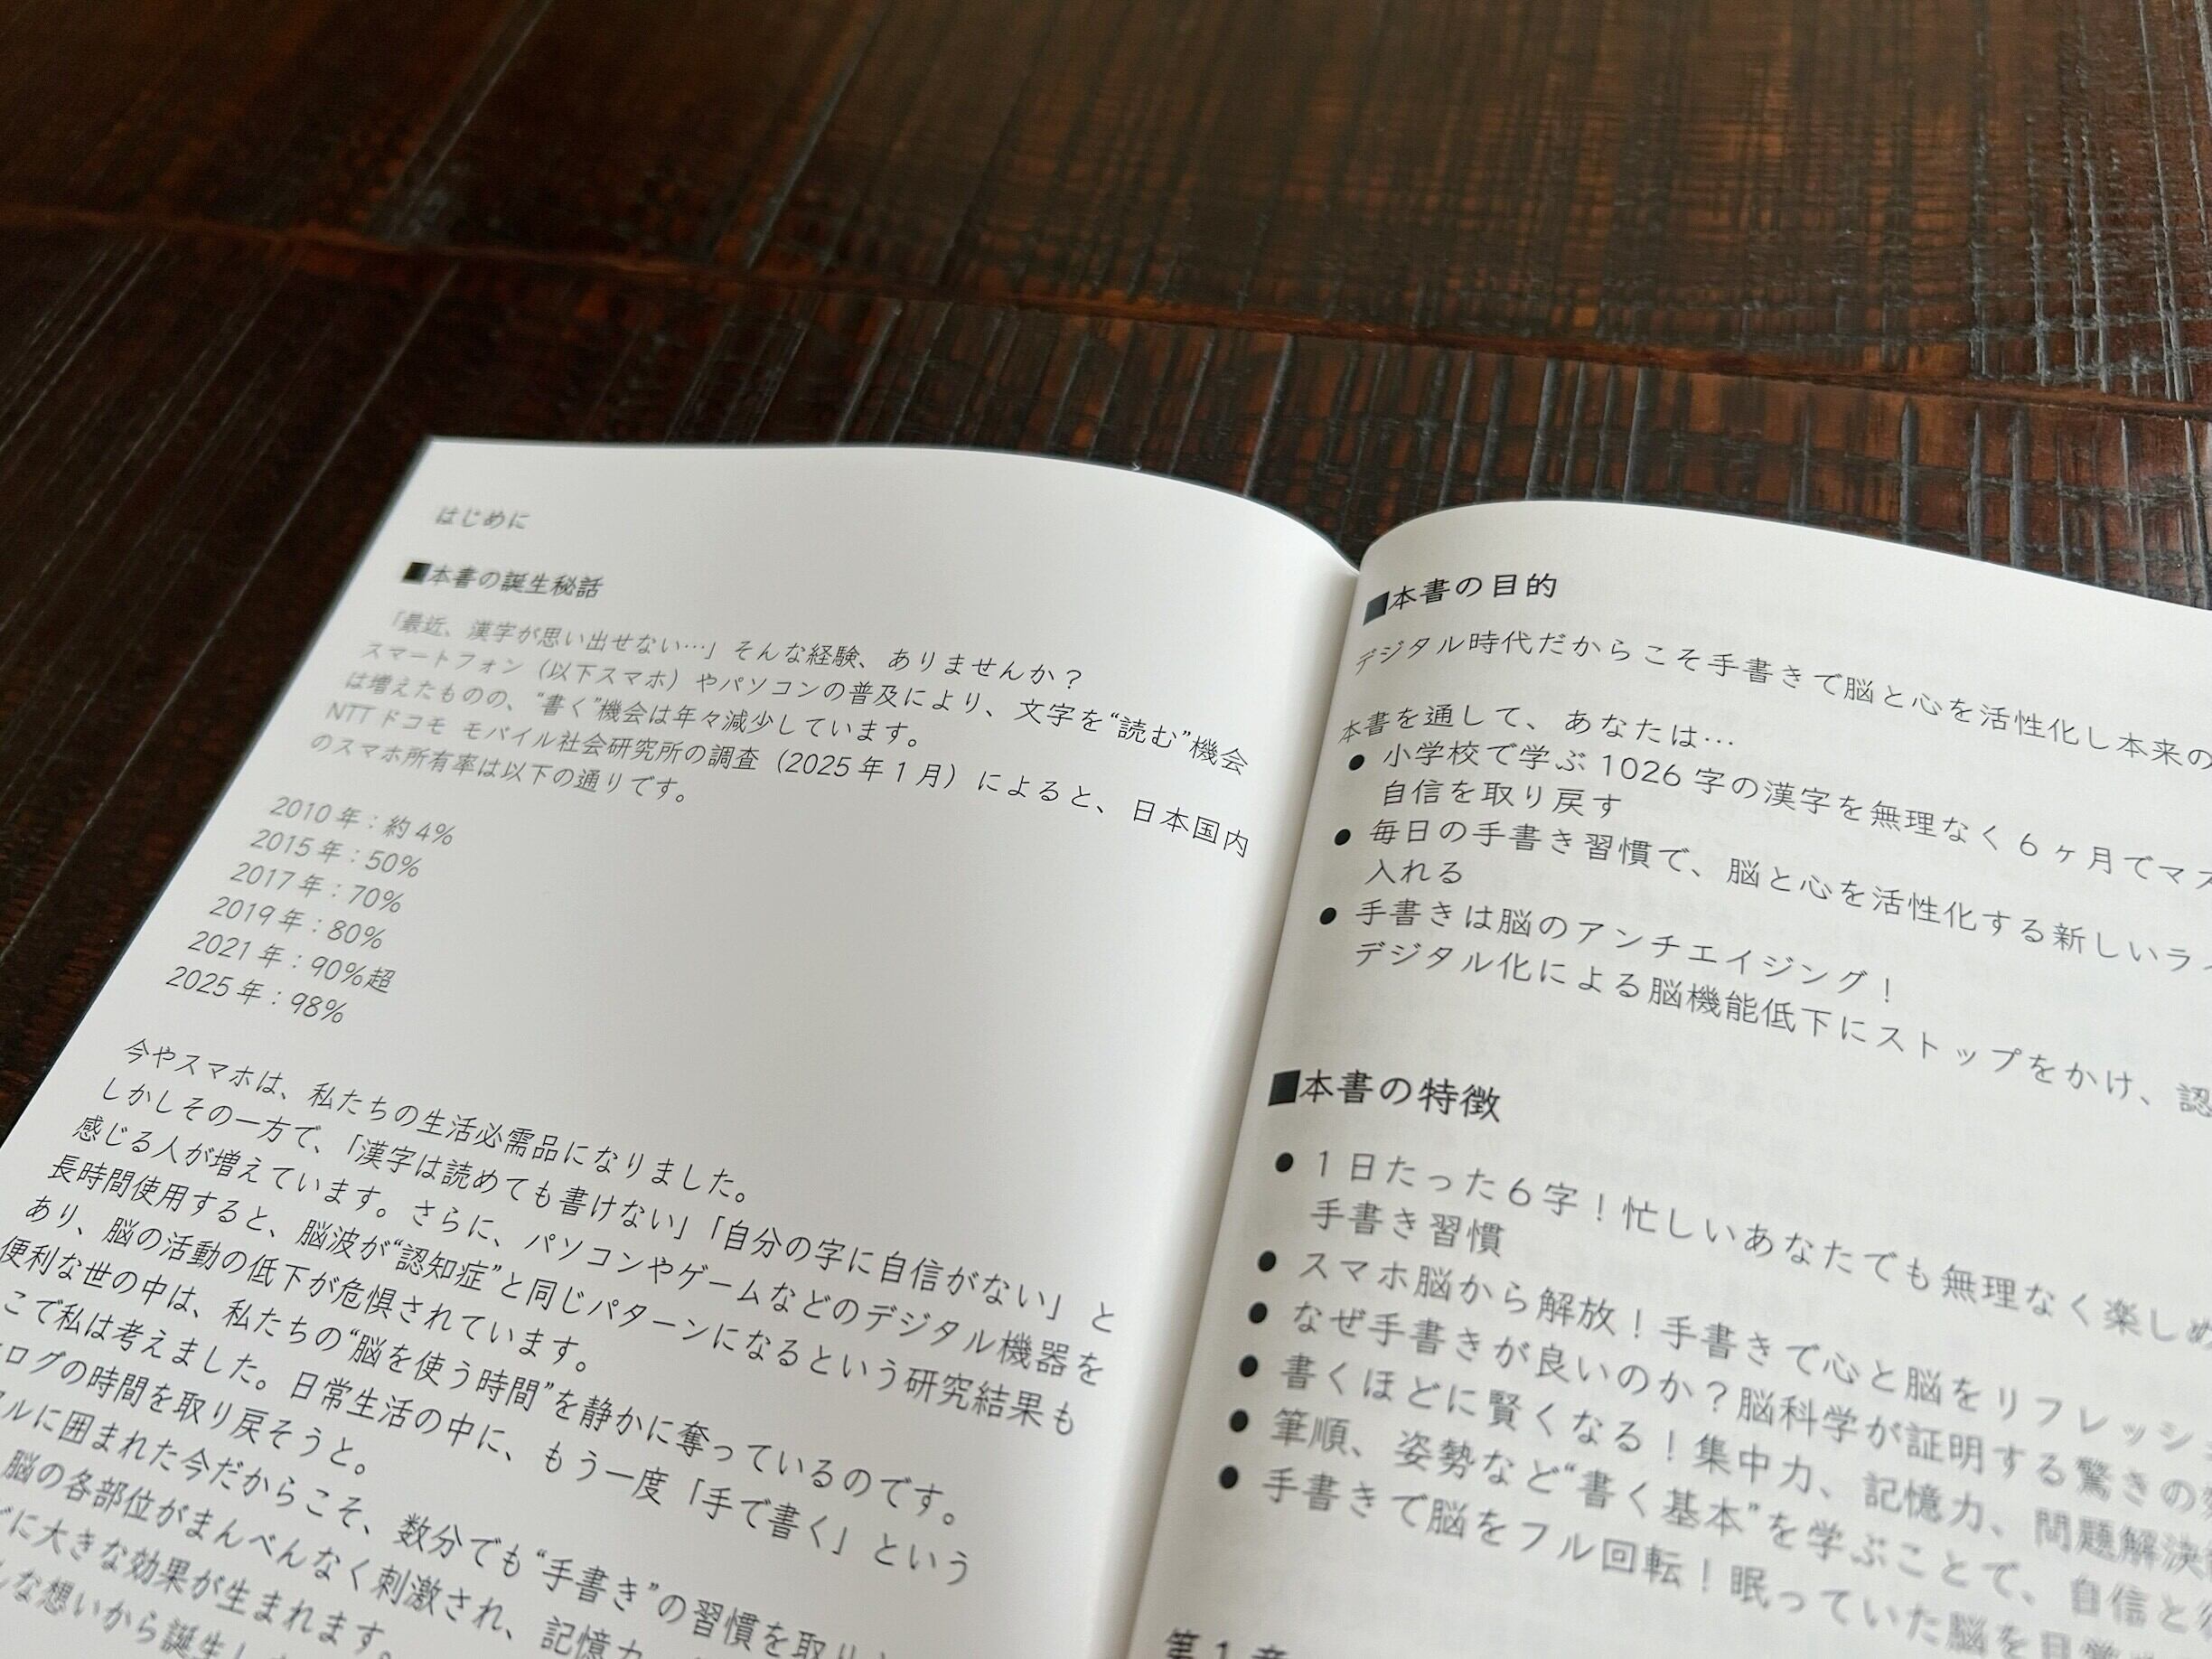 はじめに
■本書の誕生秘話
「最近、漢字が思い出せない…」そんな経験、ありませんか？
スマートフォン（以下スマホ）やパソコンの普及により、文字を“読む”機会
は増えたものの、“書く”機会は年々減少しています。
NTTドコモ モバイル社会研究所の調査（2025年1月）によると、日本国内
のスマホ所有率は以下の通りです。
2010年：約4%
2015年：50%
2017年：70%
2019年：80%
2021年：90%超
2025年：98%
今やスマホは、私たちの生活必需品になりました。
しかしその一方で、「漢字は読めても書けない」「自分の字に自信がない」と
感じる人が増えています。さらに、パソコンやゲームなどのデジタル機器を
長時間使用すると、脳波が“認知症”と同じパターンになるという研究結果も
あり、脳の活動の低下が危惧されています。
便利な世の中は、私たちの“脳を使う時間”を静かに奪っているのです。
こで私は考えました。日常生活の中に、もう一度「手で書く」という
ログの時間を取り戻そうと。
ルに囲まれた今だからこそ、数分でも“手書き”の習慣を取り
脳の各部位がまんべんなく刺激され、記憶力
に大きな効果が生まれます。
な想いから誕生し
■本書の目的
デジタル時代だからこそ手書きで脳と心を活性化し本来の
本書を通して、あなたは…
● 小学校で学ぶ1026字の漢字を無理なく6ヶ月でマス
自信を取り戻す
● 毎日の手書き習慣で、脳と心を活性化する新しいライ
入れる
● 手書きは脳のアンチエイジング！
デジタル化による脳機能低下にストップをかけ、認
■本書の特徴
● 1日たった6字！忙しいあなたでも無理なく楽しめ
手書き習慣
● スマホ脳から解放！手書きで心と脳をリフレッシ
● なぜ手書きが良いのか？脳科学が証明する驚きの
● 書くほどに賢くなる！集中力、記憶力、問題解決
● 筆順、姿勢など“書く基本”を学ぶことで、自信と
● 手書きで脳をフル回転！眠っていた脳を日常
第1章